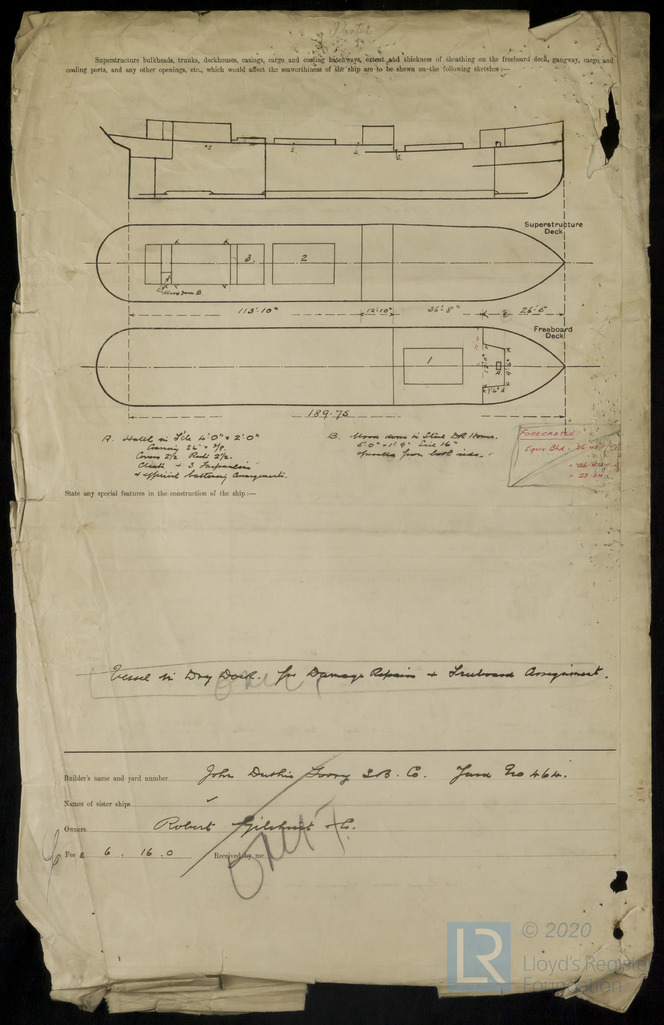 Superstructure bulkheads, trunks, deckhouses, casings, cargo and coaling hatchways, extent and thickness of sheathing on the freeboard deck, gangway, cargo and
coaling ports, and any other openings, etc., which would affect the seaworthiness of the ship are to be shewn on the following sketches:—
Superstructure
Deck
3.
2
B
113'.10"
12'.10"
36'.8"
26'.5
Freeboard
Deck
1
A
189.75
A. Hatch in F'cle 2'.0"
Coaming 24"
Covers 2½
Cleats + 3 Tarpaulins
+ efficient battening arrangements.
B. doors in Steel
5'.0" × 1'.9" Sill 16"
operated from both sides.
Forecastle
Equiv. Bhd
State any special features in the construction of the ship:—
Vessel in Dry Dock. for Damage Repairs + Freeboard Assignment.
Builder's name and yard number John Duthie Torry S.B. Co. Yard No 464.
Names of sister ships
Owners Robert Gilchrist & Co.
Fee £ 6 . 16 . 0 Received by me
LR
© 2020
Lloyd's Register
Foundation